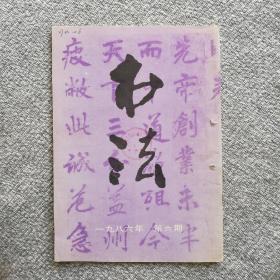 书法
先帝創業未半
而道殂今
天下三益州
疲敝此誠危急
一九八六年 第六期